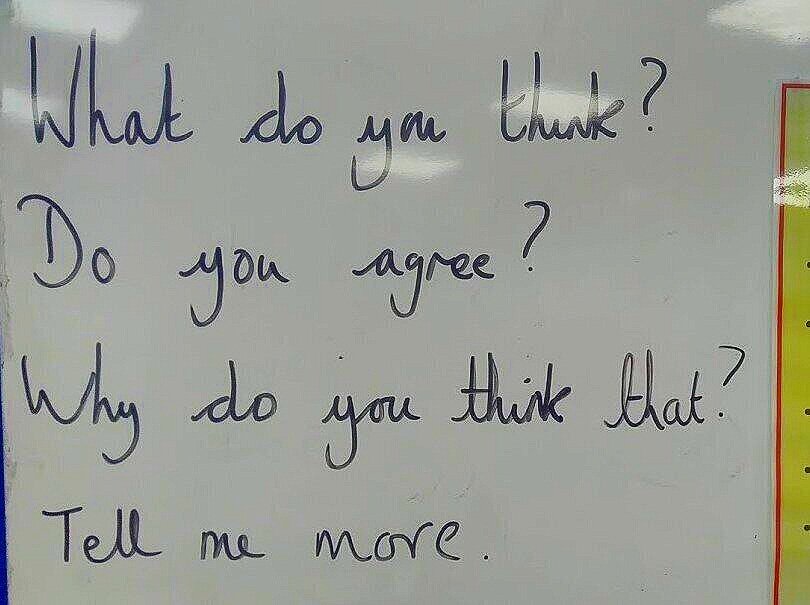 What do you think?
Do you agree?
Why do you think that?
Tell me more.